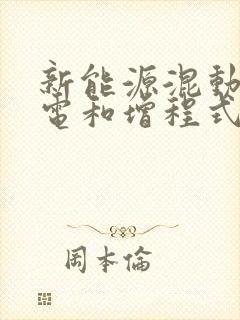 新能源混動
電和增程式
岡本倫